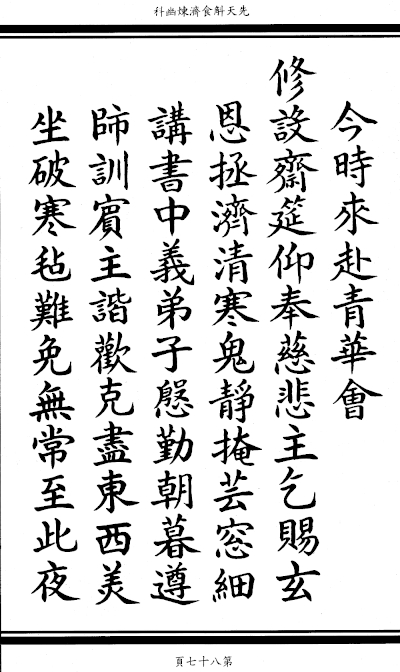 先天斛食濟煉幽科
今時來赴青華會
修設齋筵仰奉慈悲主乞賜玄
恩拯濟清寒鬼靜掩芸窓細
講書中義弟子慇勤朝暮遵
師訓賓主諧歡克盡東西美
坐破寒毡難免無常至此夜
第八十七頁